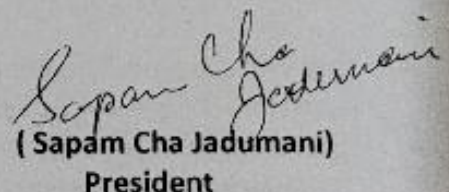 Sapam Cha
Jadumani
( Sapam Cha Jadumani)
President